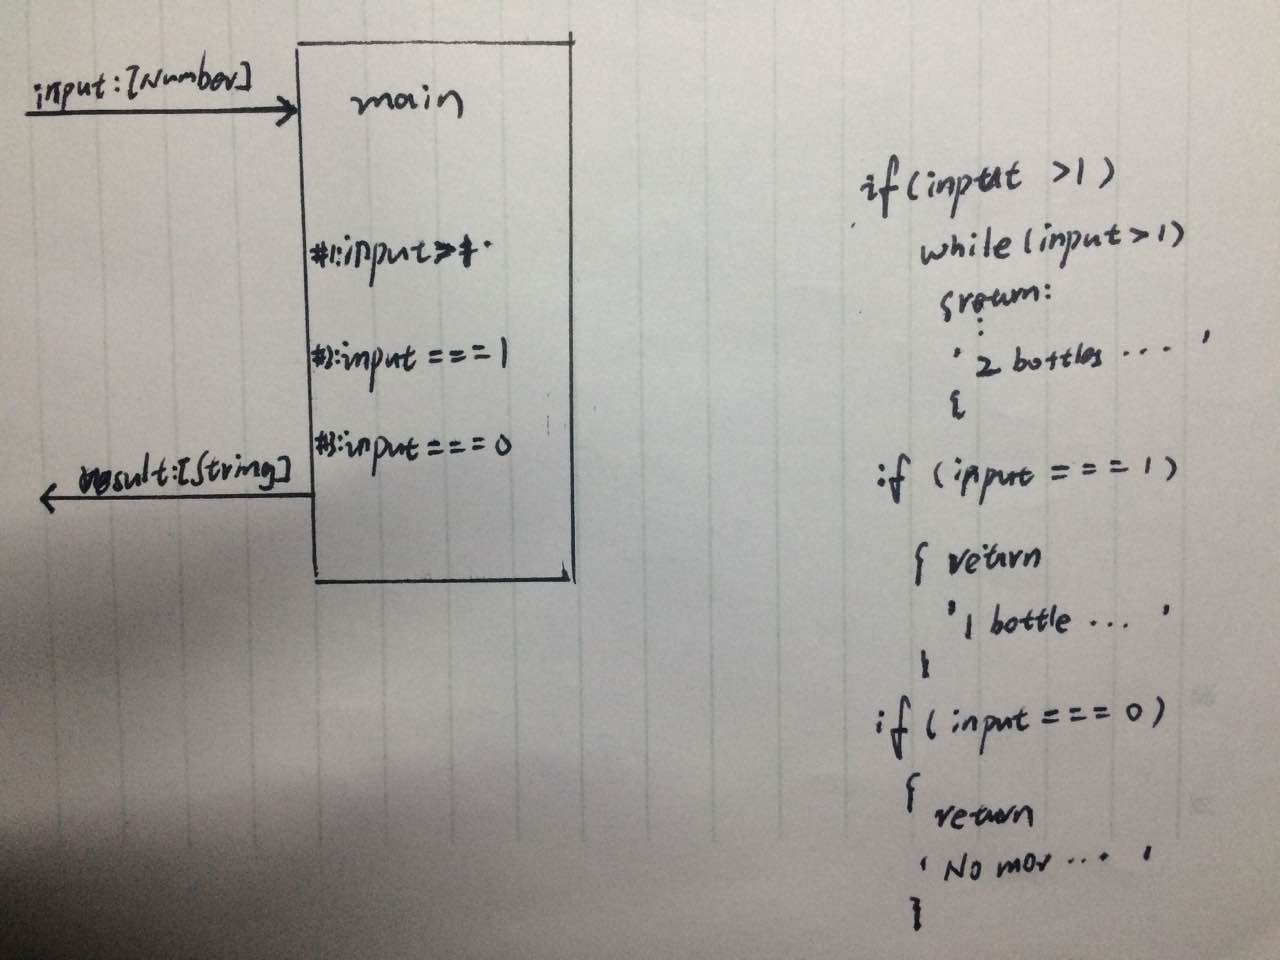 input:[Number]
main
#1:input>1
#2:input===1
#3:input===0
result:[String]
if(input >1)
while(input>1)
{return:
:
' 2 bottles ... '
{
if (input === 1)
{ return
'1 bottle ... '
}
if(input===0)
{
return
' No mor ... '
}